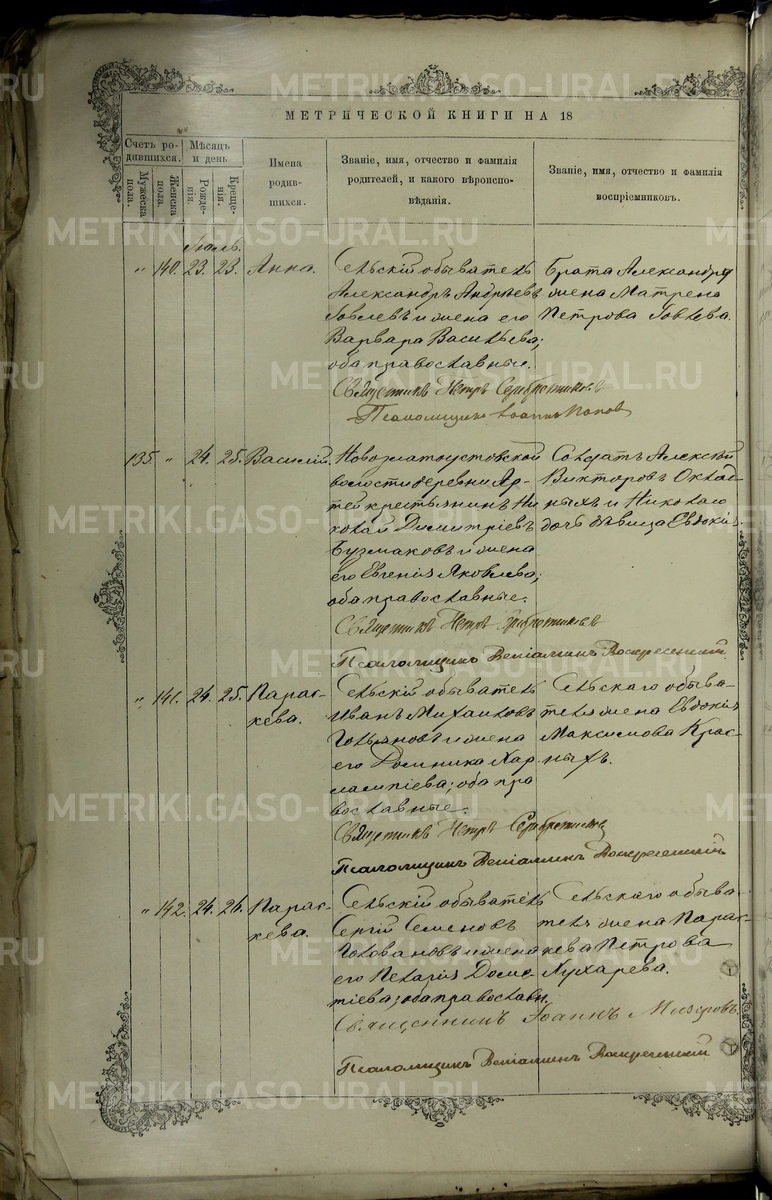 МЕТРИЧЕСКОЙ КНИГИ НА 18
Счетъ ро-
дившихся.
Мѣсяцъ
и день
Имена
родив-
шихся.
Званіе, имя, отчество и фамилія
родителей, и какого вѣроиспо-
вѣданія.
Званіе, имя, отчество и фамилія
воспріемниковъ.
Мужеска
пола.
Женска
пола.
Рожде-
нія.
Креще-
нія.
Іюль.
„ 140. 23. 23. Анна.
Сельскій обыватель
Александръ Андреевъ
и жена его
Варвара Васильева;
оба православные.
Священникъ Петръ Серебренниковъ
Псаломщикъ Іоаннъ Поповъ
Брата Александра
жена Матрена
Петрова
135. „ 24. 25. Василій.
Новозлатоустовской
волости деревни Ар-
тей крестьянинъ Ни
колай Димитріевъ
Бузмаковъ и жена
его Евгенія Яковлева;
оба православные.
Священникъ Петръ Серебренниковъ
Псаломщикъ Веніаминъ Воскресенскій.
Солдатъ Алексѣй
Викторовъ
и Николаю
дочь дѣвица Евдокія.
„ 141. 24. 25. Парас-
кева.
Сельскій обыватель
Иванъ Михаиловъ
и жена
его Домника Хар
лампіева; оба пра
вославные.
Священникъ Петръ Серебренниковъ
Псаломщикъ Веніаминъ Воскресенскій
Сельскаго обыва-
теля жена Евдокія
Максимова Крас-
ныхъ.
„ 142. 24. 26. Парас-
кева.
Сельскій обыватель
Сергій Семеновъ
Головановъ и жена
его Пелагія
оба православн.
Священникъ Іоаннъ Мизеровъ.
Псаломщикъ Веніаминъ Воскресенскій
Сельскаго обыва-
теля жена Парас-
кева Петрова
Кухарева.
METRIKI.GASO-URAL.RU